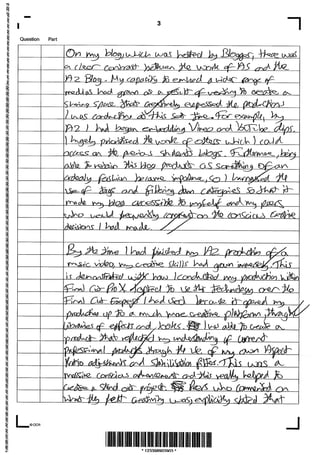 3
Question Part
On my blog which was hosted by Blogger, there was
a clear contrast between the work of AS and the
A2 Blog. My capacity to embed a wider range of
medias had grown as a result of wanting to create a
sharing space that creatively expressed the production
I was conducting at this set time. For example, by
A2 I had began embedding Vimeo and YouTube clips.
I hugely prioritised the work of others which I could
access on the previous students blogs. Furthermore, being
able to maintain this blog products as something of an
orderly fashion became imperative, so I increased the
use of tags and filtering down categories so that it
made my blog accessible to myself and my peers,
who would frequently comment on the conscious creative
decisions I had made.
By the time I had finished my A2 production of a
music video, my creative skills had grown immensely. This
is demonstrated with how I conducted my production within
Final Cut Pro X. I opted to use this technology over the
Final Cut Express I had used because it opened my
production up to a much more creative platform, through
libraries of effects and looks. I was able to create a
product that reflected my understanding of current
professional products through the use of my own Aspect
Ratio adjustments and Stabilisation filters. This was a
massive conscious advancement and this really helped to
create a stand out project. Peers who commented on
what they felt creativity was, explicitly stated that
© OCR